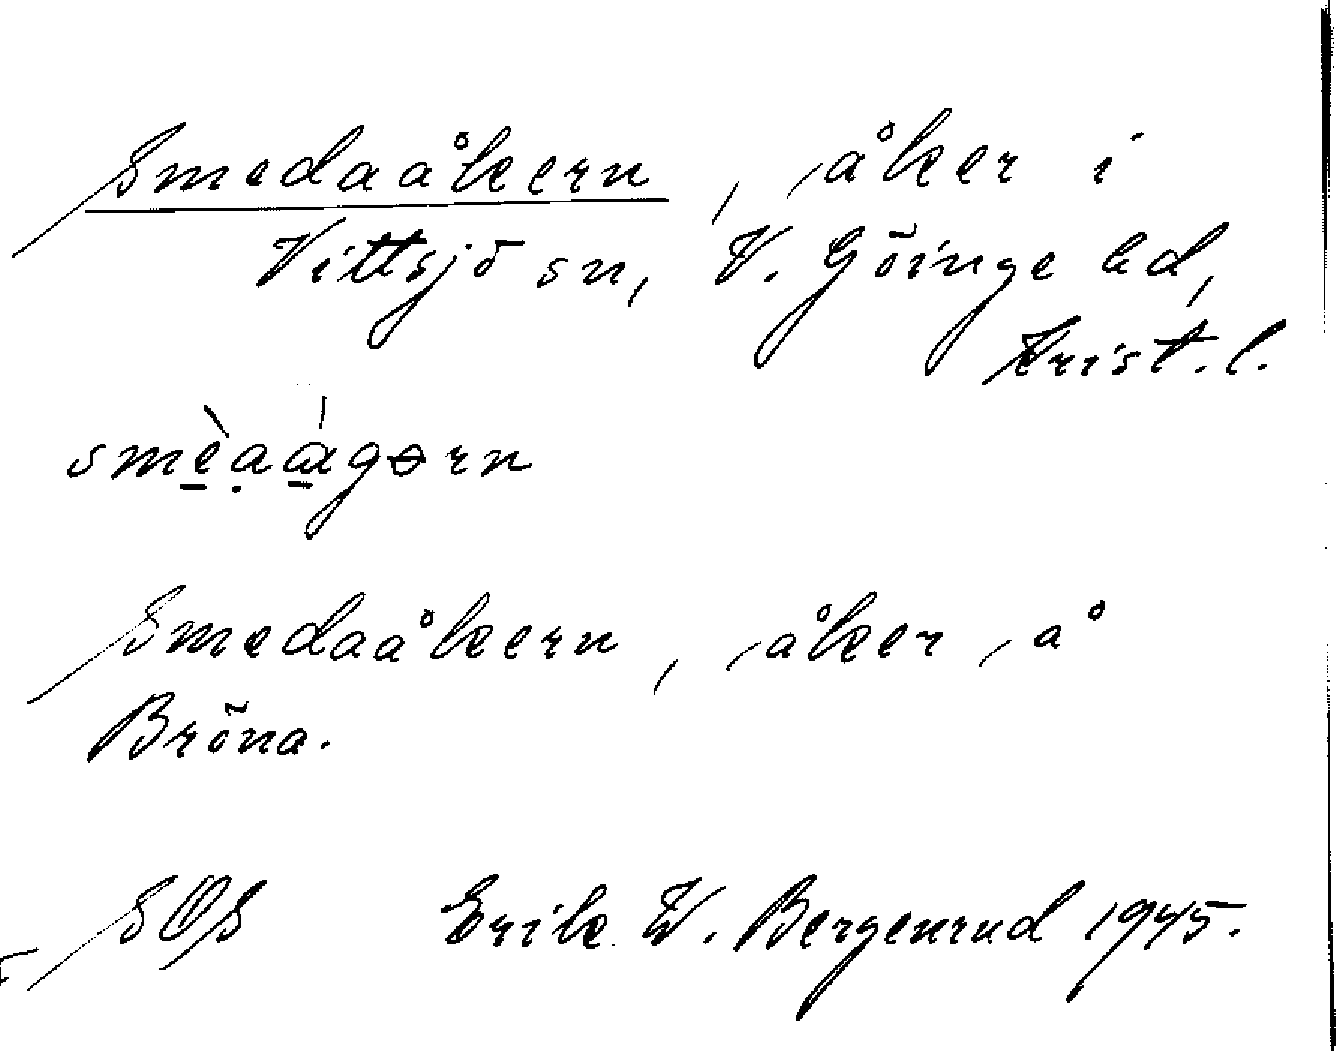 Smedaåkern, åker i
Vittsjö sn, V. Göinge hd,
Krist. l.
smèaágərn
Smedaåkern, åker å
Bröna.
SOS Erik W. Bergenrud 1945.